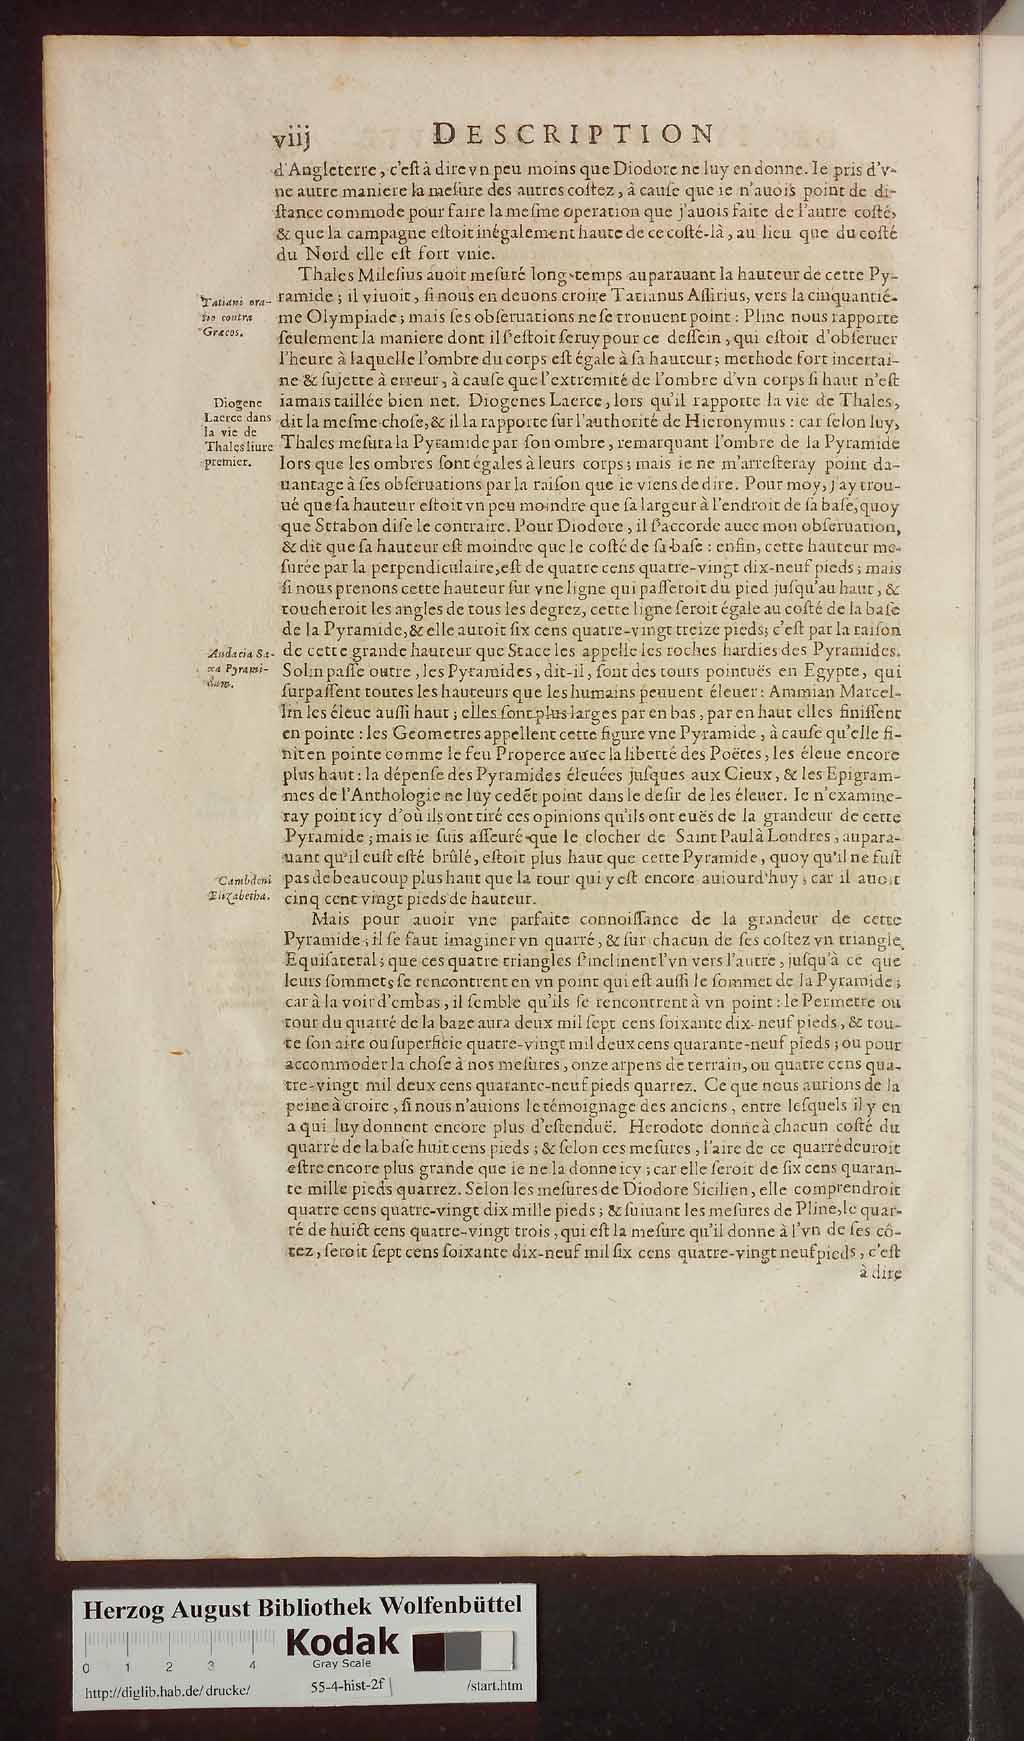 viij DESCRIPTION
d'Angleterre, c'eſt à dire vn peu moins que Diodore ne luy en donne. Ie pris d'v-
ne autre maniere la meſure des autres coſtez, à cauſe que ie n'auois point de di-
ſtance commode pour faire la meſme operation que j'auois faite de l'autre coſté,
& que la campagne eſtoit inégalement haute de ce coſté-là, au lieu que du coſté
du Nord elle eſt fort vnie.
Thales Mileſius auoit meſuré long-temps auparauant la hauteur de cette Py-
Tatiani ora-
tio contra
Græcos.
ramide; il viuoit, ſi nous en deuons croire Tatianus Aſſirius, vers la cinquantié-
me Olympiade; mais ſes obſeruations ne ſe trouuent point: Pline nous rapporte
ſeulement la maniere dont il ſ'eſtoit ſeruy pour ce deſſein, qui eſtoit d'obſeruer
l'heure à laquelle l'ombre du corps eſt égale à ſa hauteur; methode fort incertai-
ne & ſujette à erreur, à cauſe que l'extremité de l'ombre d'vn corps ſi haut n'eſt
Diogene
Laerce dans
la vie de
Thales liure
premier.
iamais taillée bien net. Diogenes Laerce, lors qu'il rapporte la vie de Thales,
dit la meſme choſe, & il la rapporte ſur l'authorité de Hieronymus: car ſelon luy,
Thales meſura la Pyramide par ſon ombre, remarquant l'ombre de la Pyramide
lors que les ombres ſont égales à leurs corps; mais ie ne m'arreſteray point da-
uantage à ſes obſeruations par la raiſon que ie viens de dire. Pour moy, j'ay trou-
ué que ſa hauteur eſtoit vn peu moindre que ſa largeur à l'endroit de ſa baſe, quoy
que Strabon diſe le contraire. Pour Diodore, il ſ'accorde auec mon obſeruation,
& dit que ſa hauteur eſt moindre que le coſté de ſa baſe: enfin, cette hauteur me-
ſurée par la perpendiculaire, eſt de quatre cens quatre-vingt dix-neuf pieds; mais
ſi nous prenons cette hauteur ſur vne ligne qui paſſeroit du pied juſqu'au haut, &
toucheroit les angles de tous les degrez, cette ligne ſeroit égale au coſté de la baſe
de la Pyramide, & elle auroit ſix cens quatre-vingt treize pieds; c'eſt par la raiſon
Audacia Sa-
xa Pyrami-
dum.
de cette grande hauteur que Stace les appelle les roches hardies des Pyramides.
Solin paſſe outre, les Pyramides, dit-il, ſont des tours pointuës en Egypte, qui
ſurpaſſent toutes les hauteurs que les humains peuuent éleuer: Ammian Marcel-
lin les éleue auſſi haut; elles ſont plus larges par en bas, par en haut elles finiſſent
en pointe: les Geometres appellent cette figure vne Pyramide, à cauſe qu'elle fi-
nit en pointe comme le feu Properce auec la liberté des Poëtes, les éleue encore
plus haut: la dépenſe des Pyramides éleuées juſques aux Cieux, & les Epigram-
mes de l'Anthologie ne luy cedẽt point dans le deſir de les éleuer. Ie n'examine-
ray point icy d'où ils ont tiré ces opinions qu'ils ont euës de la grandeur de cette
Pyramide; mais ie ſuis aſſeuré que le clocher de Saint Paul à Londres, aupara-
uant qu'il euſt eſté brûlé, eſtoit plus haut que cette Pyramide, quoy qu'il ne fuſt
Cambdeni
Elizabetha.
pas de beaucoup plus haut que la tour qui y eſt encore auiourd'huy, car il auoit
cinq cent vingt pieds de hauteur.
Mais pour auoir vne parfaite connoiſſance de la grandeur de cette
Pyramide, il ſe faut imaginer vn quarré, & ſur chacun de ſes coſtez vn triangle
Equilateral; que ces quatre triangles ſ'inclinent l'vn vers l'autre, juſqu'à ce que
leurs ſommets ſe rencontrent en vn point qui eſt auſſi le ſommet de la Pyramide;
car à la voir d'embas, il ſemble qu'ils ſe rencontrent à vn point: le Permetre ou
tour du quarré de la baze aura deux mil ſept cens ſoixante dix-neuf pieds, & tou-
te ſon aire ou ſuperficie quatre-vingt mil deux cens quarante-neuf pieds; ou pour
accommoder la choſe à nos meſures, onze arpens de terrain, ou quatre cens qua-
tre-vingt mil deux cens quarante-neuf pieds quarrez. Ce que nous aurions de la
peine à croire, ſi nous n'auions le témoignage des anciens, entre leſquels il y en
a qui luy donnent encore plus d'eſtenduë. Herodote donne à chacun coſté du
quarré de la baſe huit cens pieds; & ſelon ces meſures, l'aire de ce quarré deuroit
eſtre encore plus grande que ie ne la donne icy; car elle ſeroit de ſix cens quaran-
te mille pieds quarrez. Selon les meſures de Diodore Sicilien, elle comprendroit
quatre cens quatre-vingt dix mille pieds; & ſuiuant les meſures de Pline, le quar-
ré de huict cens quatre-vingt trois, qui eſt la meſure qu'il donne à l'vn de ſes cô-
tez, ſeroit ſept cens ſoixante dix-neuf mil ſix cens quatre-vingt neuf pieds, c'eſt
à dire
Herzog August Bibliothek Wolfenbüttel
Kodak
Gray Scale
0 1 2 3 4
http://diglib.hab.de/drucke/ 55-4-hist-2f /start.htm